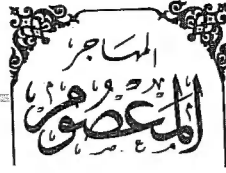 المهاجر
المعصوم